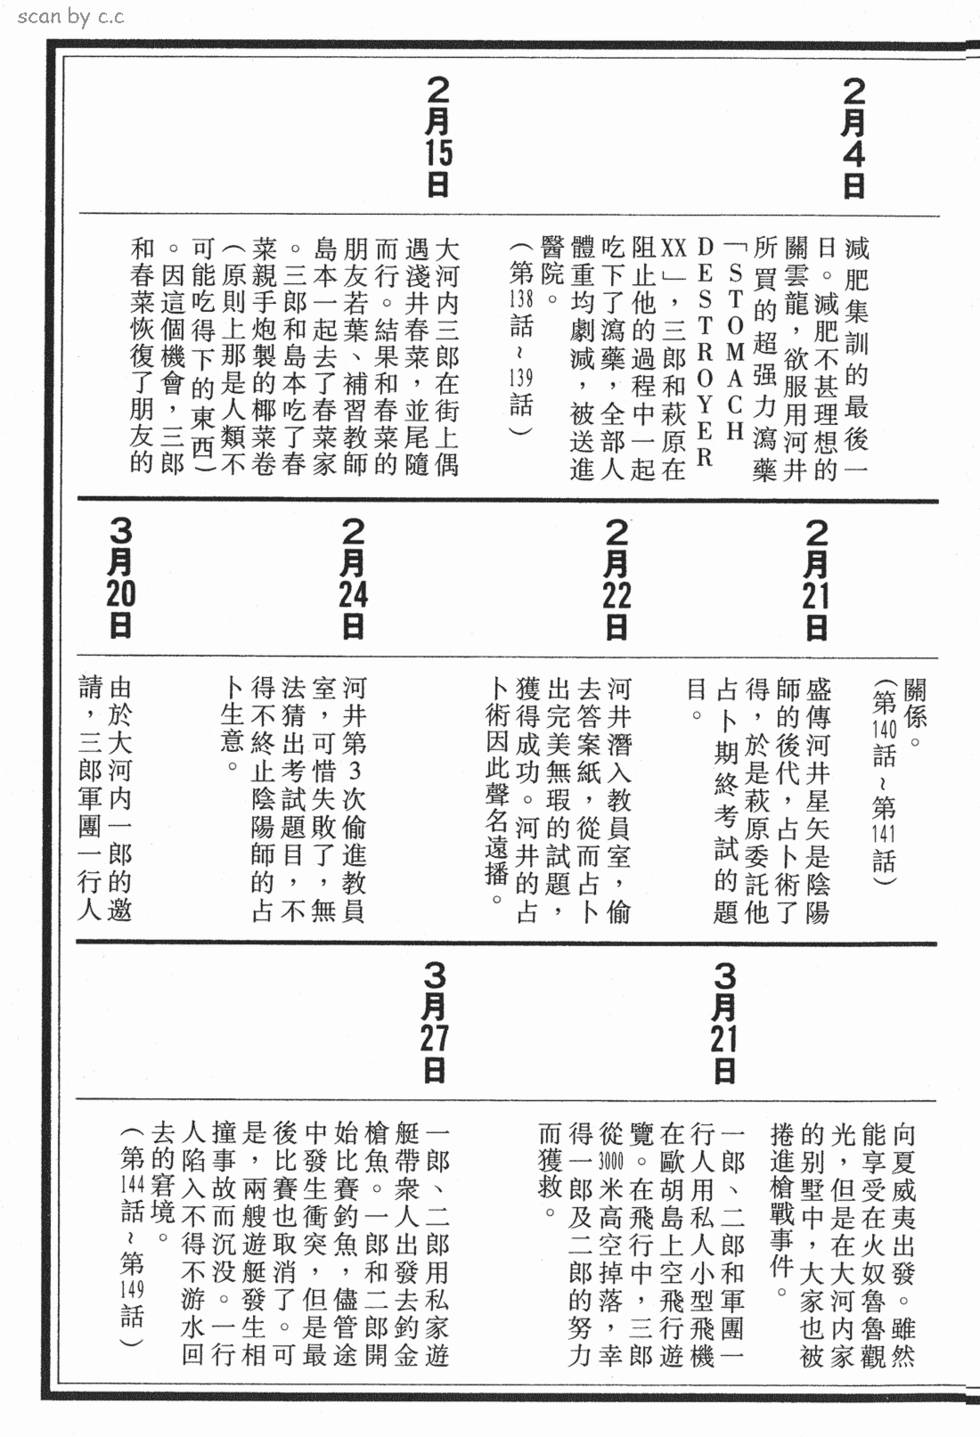 scan by c.c
2月4日
減肥集訓的最後一
日。減肥不甚理想的
關雲龍，欲服用河井
所買的超强力瀉藥
「STOMACH
DESTROYER
XX」，三郎和萩原在
阻止他的過程中一起
吃下了瀉藥，全部人
體重均劇減，被送進
醫院。
（第138話~139話）
2月15日
大河内三郎在街上偶
遇淺井春菜，並尾隨
而行。結果和春菜的
朋友若葉、補習教師
島本一起去了春菜家
。三郎和島本吃了春
菜親手炮製的椰菜卷
（原則上那是人類不
可能吃得下的東西）
。因這個機會，三郎
和春菜恢復了朋友的
關係。
（第140話~第141話）
2月21日
盛傳河井星矢是陰陽
師的後代，占卜術了
得，於是萩原委託他
占卜期終考試的題
目。
2月22日
河井潛入教員室，偷
去答案紙，從而占卜
出完美無瑕的試題，
獲得成功。河井的占
卜術因此聲名遠播。
2月24日
河井第3次偷進教員
室，可惜失敗了，無
法猜出考試題目，不
得不終止陰陽師的占
卜生意。
3月20日
由於大河内一郎的邀
請，三郎軍團一行人
向夏威夷出發。雖然
能享受在火奴魯魯觀
光，但是在大河内家
的别墅中，大家也被
捲進槍戰事件。
3月21日
一郎、二郎和軍團一
行人用私人小型飛機
在歐胡島上空飛行遊
覽。在飛行中，三郎
從3000米高空掉落，幸
得一郎及二郎的努力
而獲救。
3月27日
一郎、二郎用私家遊
艇帶衆人出發去釣金
槍魚。一郎和二郎開
始比賽釣魚，儘管途
中發生衝突，但是最
後比賽也取消了。可
是，兩艘遊艇發生相
撞事故而沉没。一行
人陷入不得不游水回
去的窘境。
（第144話~第149話）